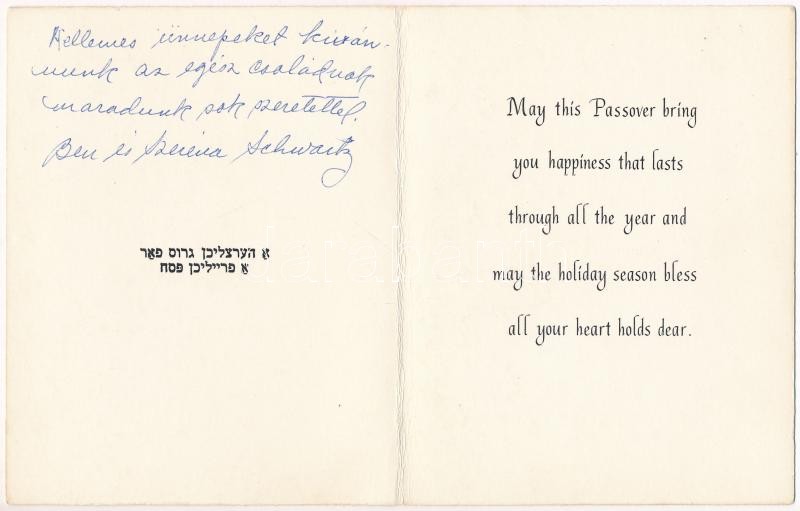 Kellemes ünnepeket kiván-
nunk az egész családnak
maradunk sok szeretettel.
Ben és Szeréna Schwartz
אַ הערצליכן גרוס פאַר
אַ פרייליכן פסח
May this Passover bring
you happiness that lasts
through all the year and
may the holiday season bless
all your heart holds dear.